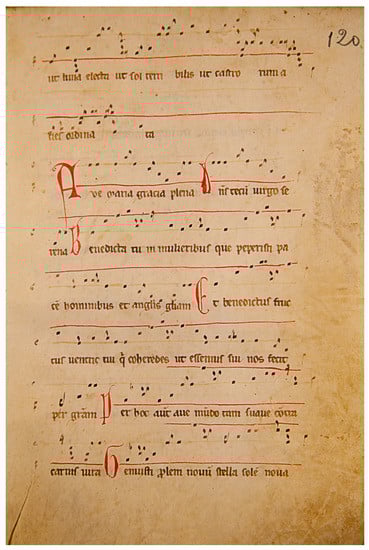 120
ut luna electa ut sol terri bilis ut castro rum a
cies ordina ta
Ave maria gracia plena Dñs tecū virgo se
rena Benedicta tu in mulieribus que peperisti pa
cē hominibus et angłis głiam Et benedictus fruc
tus ventris tui q̄ coheredes ut essemus sui nos fecit
per grām Per hoc aūt ave mūdo tam suave cōtra
carnis iura Genuisti plem novū stella solē nova